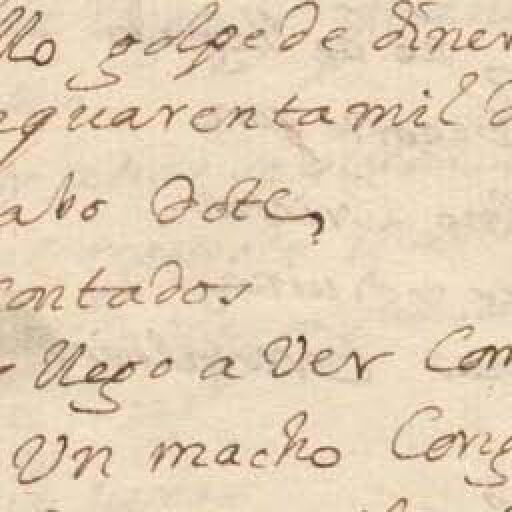 llo golpe de diner
equarenta mil d
abo dote,
contados
llego a Ver Com
Un macho Cong